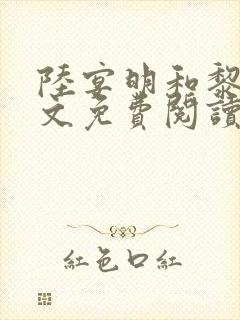 陸宴明和黎
文免費閱讀
紅色口紅